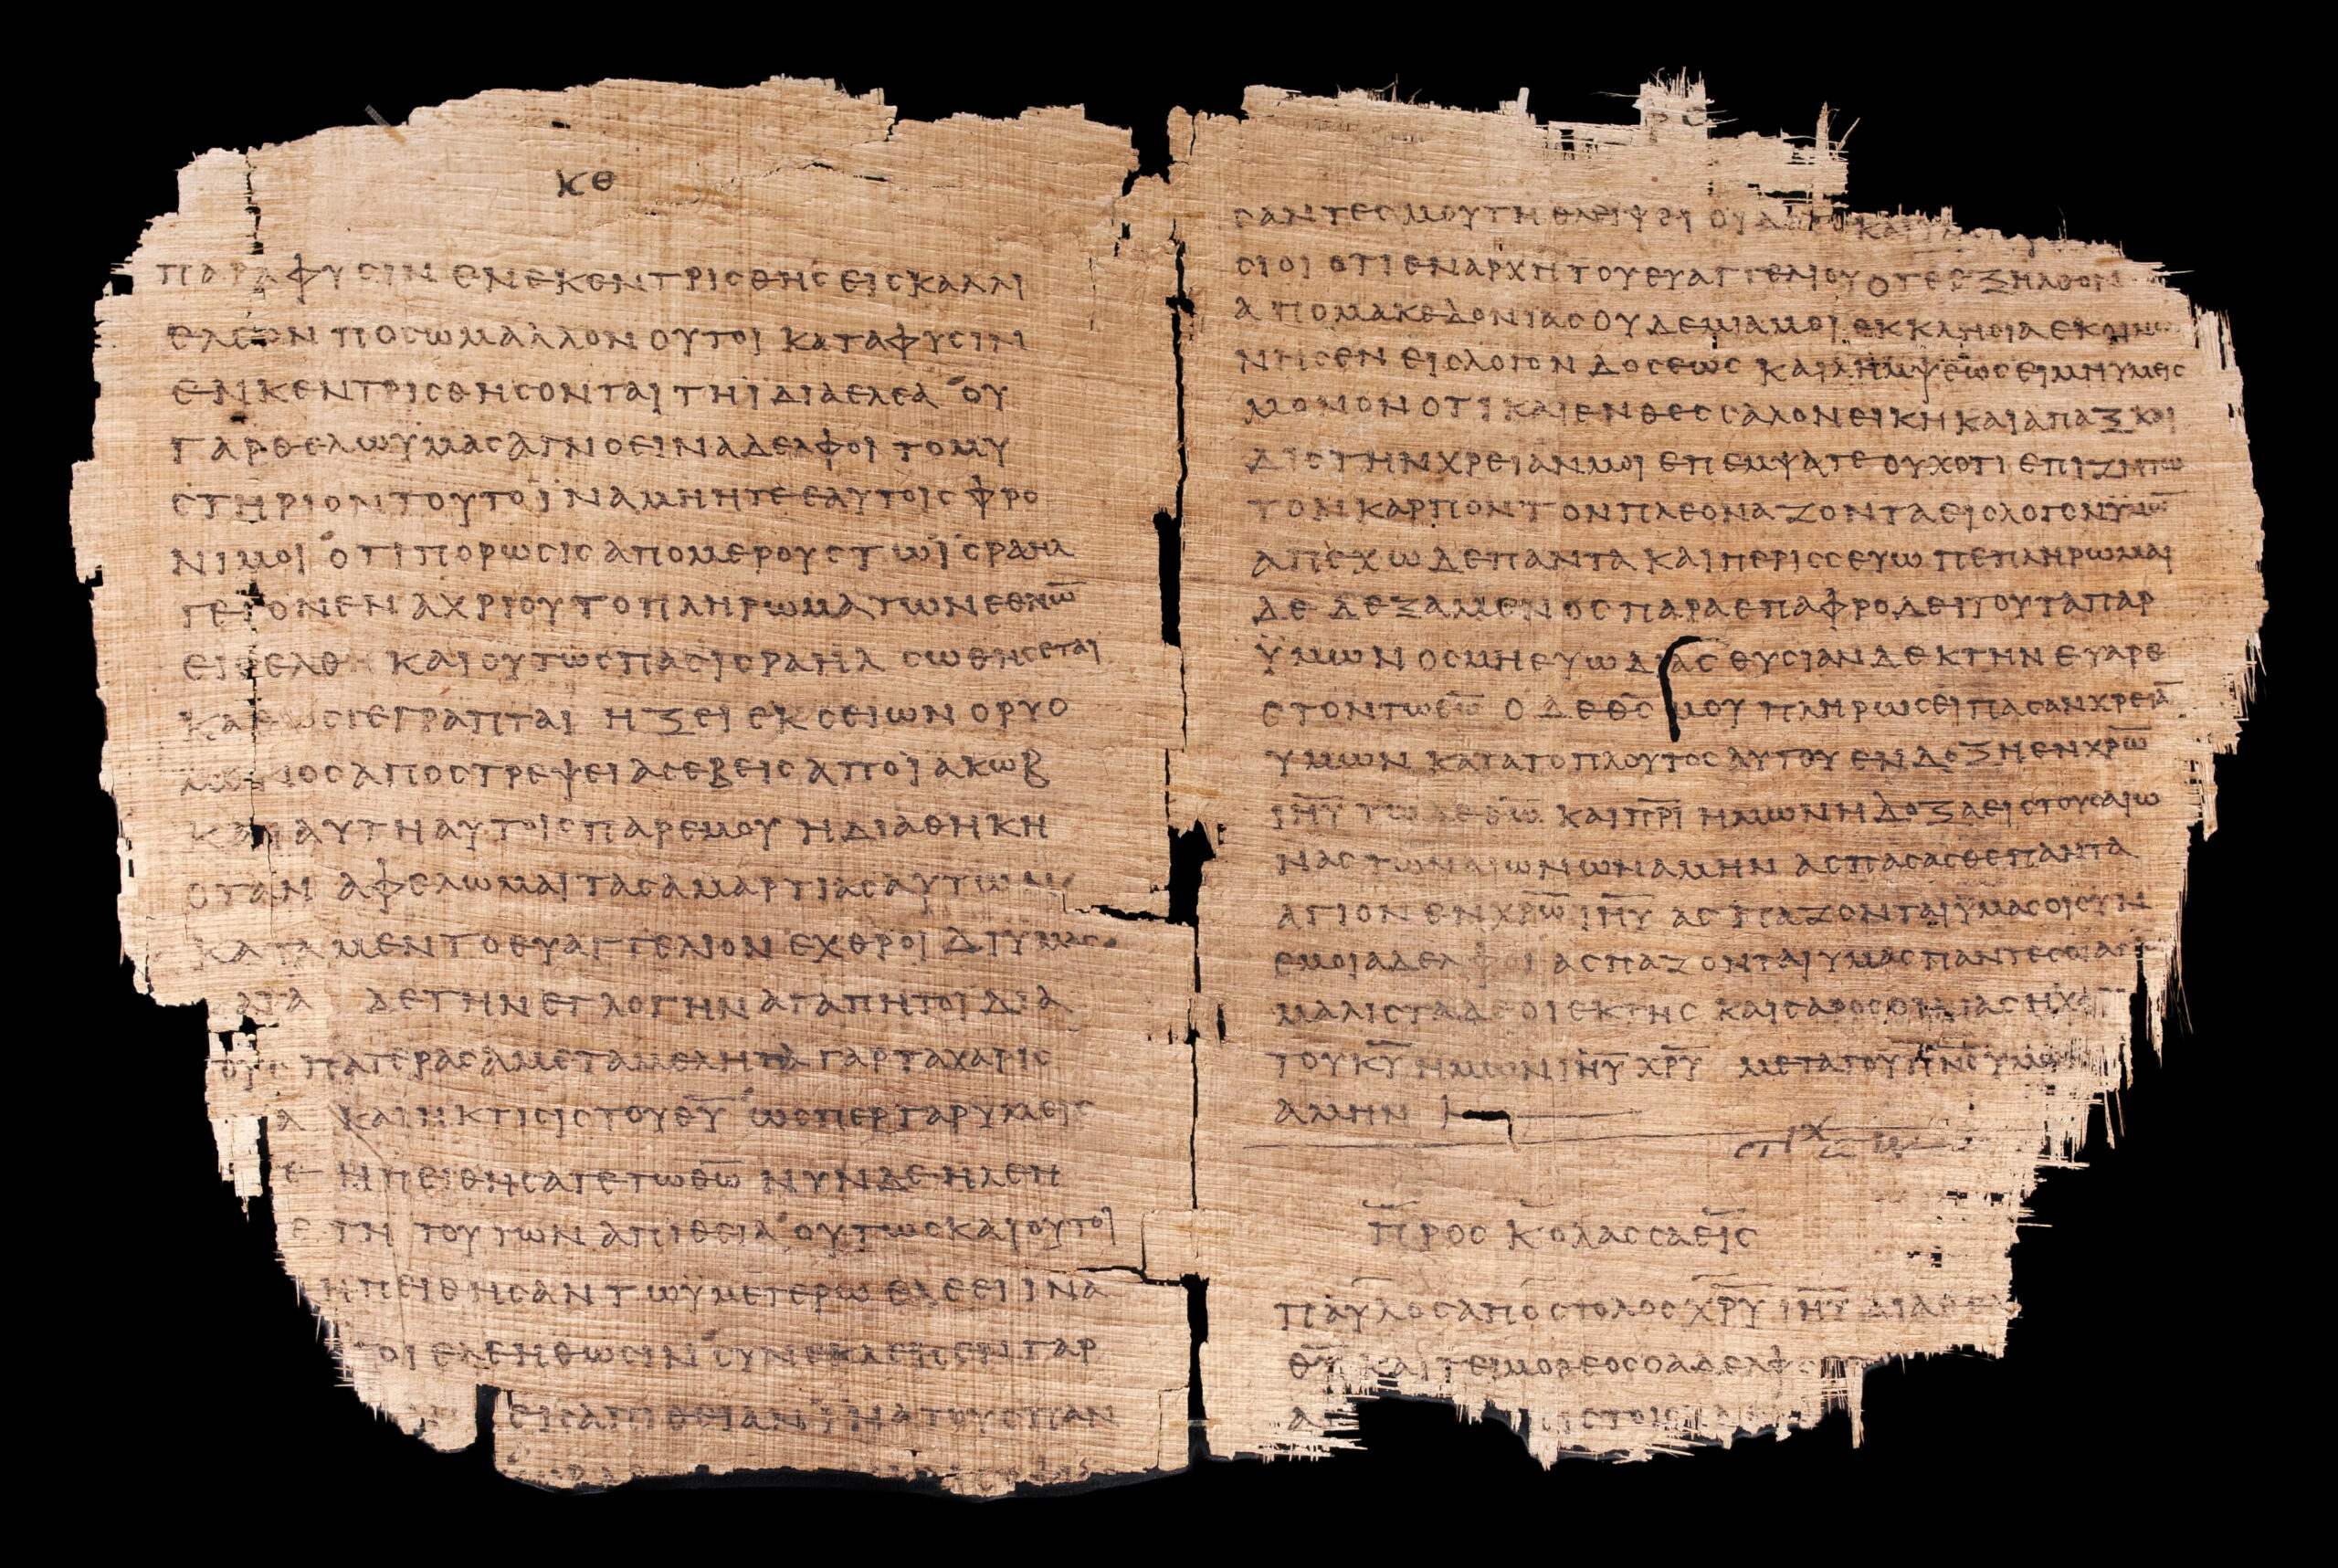 ΚΘ
ΠΑΡΑΦΥСΙΝ ΕΝΕΚΕΝΤΡΙСΘΗС ΕΙС ΚΑΛΛΙ
ΕΛΕΟΝ ΠΟСΩ ΜΑΛΛΟΝ ΟΥΤΟΙ ΚΑΤΑ ΦΥСΙΝ
ΕΝΚΕΝΤΡΙСΘΗСΟΝΤΑΙ ΤΗ ΙΔΙΑ ΕΛΕΑ ΟΥ
ΓΑΡ ΘΕΛΩ ΥΜΑС ΑΓΝΟΕΙΝ ΑΔΕΛΦΟΙ ΤΟ ΜΥ
СΤΗΡΙΟΝ ΤΟΥΤΟ ΪΝΑ ΜΗ ΗΤΕ ΕΑΥΤΟΙС ΦΡΟ
ΝΙΜΟΙ ΟΤΙ ΠΟΡΩСΙС ΑΠΟ ΜΕΡΟΥС ΤΩ ΪСΡΑΗΛ
ΓΕΓΟΝΕΝ ΑΧΡΙ ΟΥ ΤΟ ΠΛΗΡΩΜΑ ΤΩΝ ΕΘΝΩ̅
ΕΙСΕΛΘΗ ΚΑΙ ΟΥΤΩС ΠΑС ΙСΡΑΗΛ СΩΘΗСΕΤΑΙ
ΚΑΘΩС ΓΕΓΡΑΠΤΑΙ ΗΞΕΙ ΕΚ СΕΙΩΝ Ο ΡΥΟ
ΜΕΝΟС ΑΠΟСΤΡΕΨΕΙ ΑСΕΒΕΙС ΑΠΟ ΪΑΚΩΒ
ΚΑΙ ΑΥΤΗ ΑΥΤΟΙС ΠΑΡ ΕΜΟΥ Η ΔΙΑΘΗΚΗ
ΟΤΑΝ ΑΦΕΛΩΜΑΙ ΤΑС ΑΜΑΡΤΙΑС ΑΥΤΩΝ
ΚΑΤΑ ΜΕΝ ΤΟ ΕΥΑΓΓΕΛΙΟΝ ΕΧΘΡΟΙ ΔΙ ΥΜΑС
ΚΑΤΑ ΔΕ ΤΗΝ ΕΓΛΟΓΗΝ ΑΓΑΠΗΤΟΙ ΔΙΑ
ΤΟΥС ΠΑΤΕΡΑС ΑΜΕΤΑΜΕΛΗΤΑ ΓΑΡ ΤΑ ΧΑΡΙС
Α ΚΑΙ Η ΚΤΙСΙС ΤΟΥ Θ̅Υ̅ ΩСΠΕΡ ΓΑΡ ΥΜΕΙС
Ε ΗΠΕΙΘΗСΑΤΕ ΤΩ Θ̅Ω̅ ΝΥΝ ΔΕ ΗΛΕΗ
Ε ΤΗ ΤΟΥΤΩΝ ΑΠΙΘΕΙΑ ΟΥΤΩС ΚΑΙ ΟΥΤΟΙ
ΗΠΕΙΘΗСΑΝ ΤΩ ΥΜΕΤΕΡΩ ΕΛΕΕΙ ΙΝΑ
ΤΟΙ ΕΛΕΗΘΩСΙΝ СΥΝΕΚΛΕΙСΕΝ ΓΑΡ
ΕΙС ΑΠΙΘΕΙΑΝ ΪΝΑ ΤΟΥС ΠΑΝ
СΑΝΤΕС ΜΟΥ ΤΗ ΘΛΕΙΨΕΙ ΟΙΔΑΤΕ
СΙΟΙ ΟΤΙ ΕΝ ΑΡΧΗ ΤΟΥ ΕΥΑΓΓΕΛΙΟΥ ΟΤΕ ΕΞΗΛΘΟΝ
ΑΠΟ ΜΑΚΕΔΟΝΙΑС ΟΥΔΕΜΙΑ ΜΟΙ ΕΚΚΛΗСΙΑ ΕΚΟΙΝΩ
ΝΗСΕΝ ΕΙС ΛΟΓΟΝ ΔΟСΕΩС ΚΑΙ ΛΗΜΨΕΩС ΕΙ ΜΗ ΥΜΕΙС
ΜΟΝΟΝ ΟΤΙ ΚΑΙ ΕΝ ΘΕССΑΛΟΝΕΙΚΗ ΚΑΙ ΑΠΑΞ ΚΑΙ
ΔΙС ΤΗΝ ΧΡΕΙΑΝ ΜΟΙ ΕΠΕΜΨΑΤΕ ΟΥΧ ΟΤΙ ΕΠΙΖΗΤΩ
ΤΟΝ ΚΑΡΠΟΝ ΤΟΝ ΠΛΕΟΝΑΖΟΝΤΑ ΕΙС ΛΟΓΟΝ ΫΜΩ̅
ΑΠΕΧΩ ΔΕ ΠΑΝΤΑ ΚΑΙ ΠΕΡΙССΕΥΩ ΠΕΠΛΗΡΩΜΑΙ
ΔΕ ΔΕΞΑΜΕΝΟС ΠΑΡΑ ΕΠΑΦΡΟΔΕΙΤΟΥ ΤΑ ΠΑΡ
ΫΜΩΝ ΟСΜΗ ΕΥΩΔΙΑС ΘΥСΙΑΝ ΔΕΚΤΗΝ ΕΥΑΡΕ
СΤΟΝ ΤΩ Θ̅Ω̅ Ο ΔΕ Θ̅С̅ ΜΟΥ ΠΛΗΡΩСΕΙ ΠΑСΑΝ ΧΡΕΙΑ̅
ΥΜΩΝ ΚΑΤΑ ΤΟ ΠΛΟΥΤΟС ΑΥΤΟΥ ΕΝ ΔΟΞΗ ΕΝ Χ̅Ρ̅Ω̅
Ι̅Η̅Υ̅ ΤΩ ΔΕ Θ̅Ω̅ ΚΑΙ Π̅Ρ̅Ι̅ ΗΜΩΝ Η ΔΟΞΑ ΕΙС ΤΟΥС ΑΙΩ
ΝΑС ΤΩΝ ΑΙΩΝΩΝ ΑΜΗΝ ΑСΠΑСΑСΘΕ ΠΑΝΤΑ
ΑΓΙΟΝ ΕΝ Χ̅Ρ̅Ω̅ Ι̅Η̅Υ̅ ΑСΠΑΖΟΝΤΑΙ ΫΜΑС ΟΙ СΥΝ
ΕΜΟΙ ΑΔΕΛΦΟΙ ΑСΠΑΖΟΝΤΑΙ ΥΜΑС ΠΑΝΤΕС ΟΙ ΑΓΙ
ΜΑΛΙСΤΑ ΔΕ ΟΙ ΕΚ ΤΗС ΚΑΙСΑΡΟС ΟΙΚΙΑС Η ΧΑΡΙ
ΤΟΥ Κ̅Υ̅ ΗΜΩΝ Ι̅Η̅Υ̅ Χ̅Ρ̅Υ̅ ΜΕΤΑ ΤΟΥ Π̅Ν̅С̅ ΥΜΩΝ
ΑΜΗΝ
ΠΡΟС ΚΟΛΑССΑΕΙС
ΠΑΥΛΟС ΑΠΟСΤΟΛΟС Χ̅Ρ̅Υ̅ Ι̅Η̅Υ̅ ΔΙΑ ΘΕ
Θ̅Υ̅ ΚΑΙ ΤΕΙΜΟΘΕΟС Ο ΑΔΕΛΦ